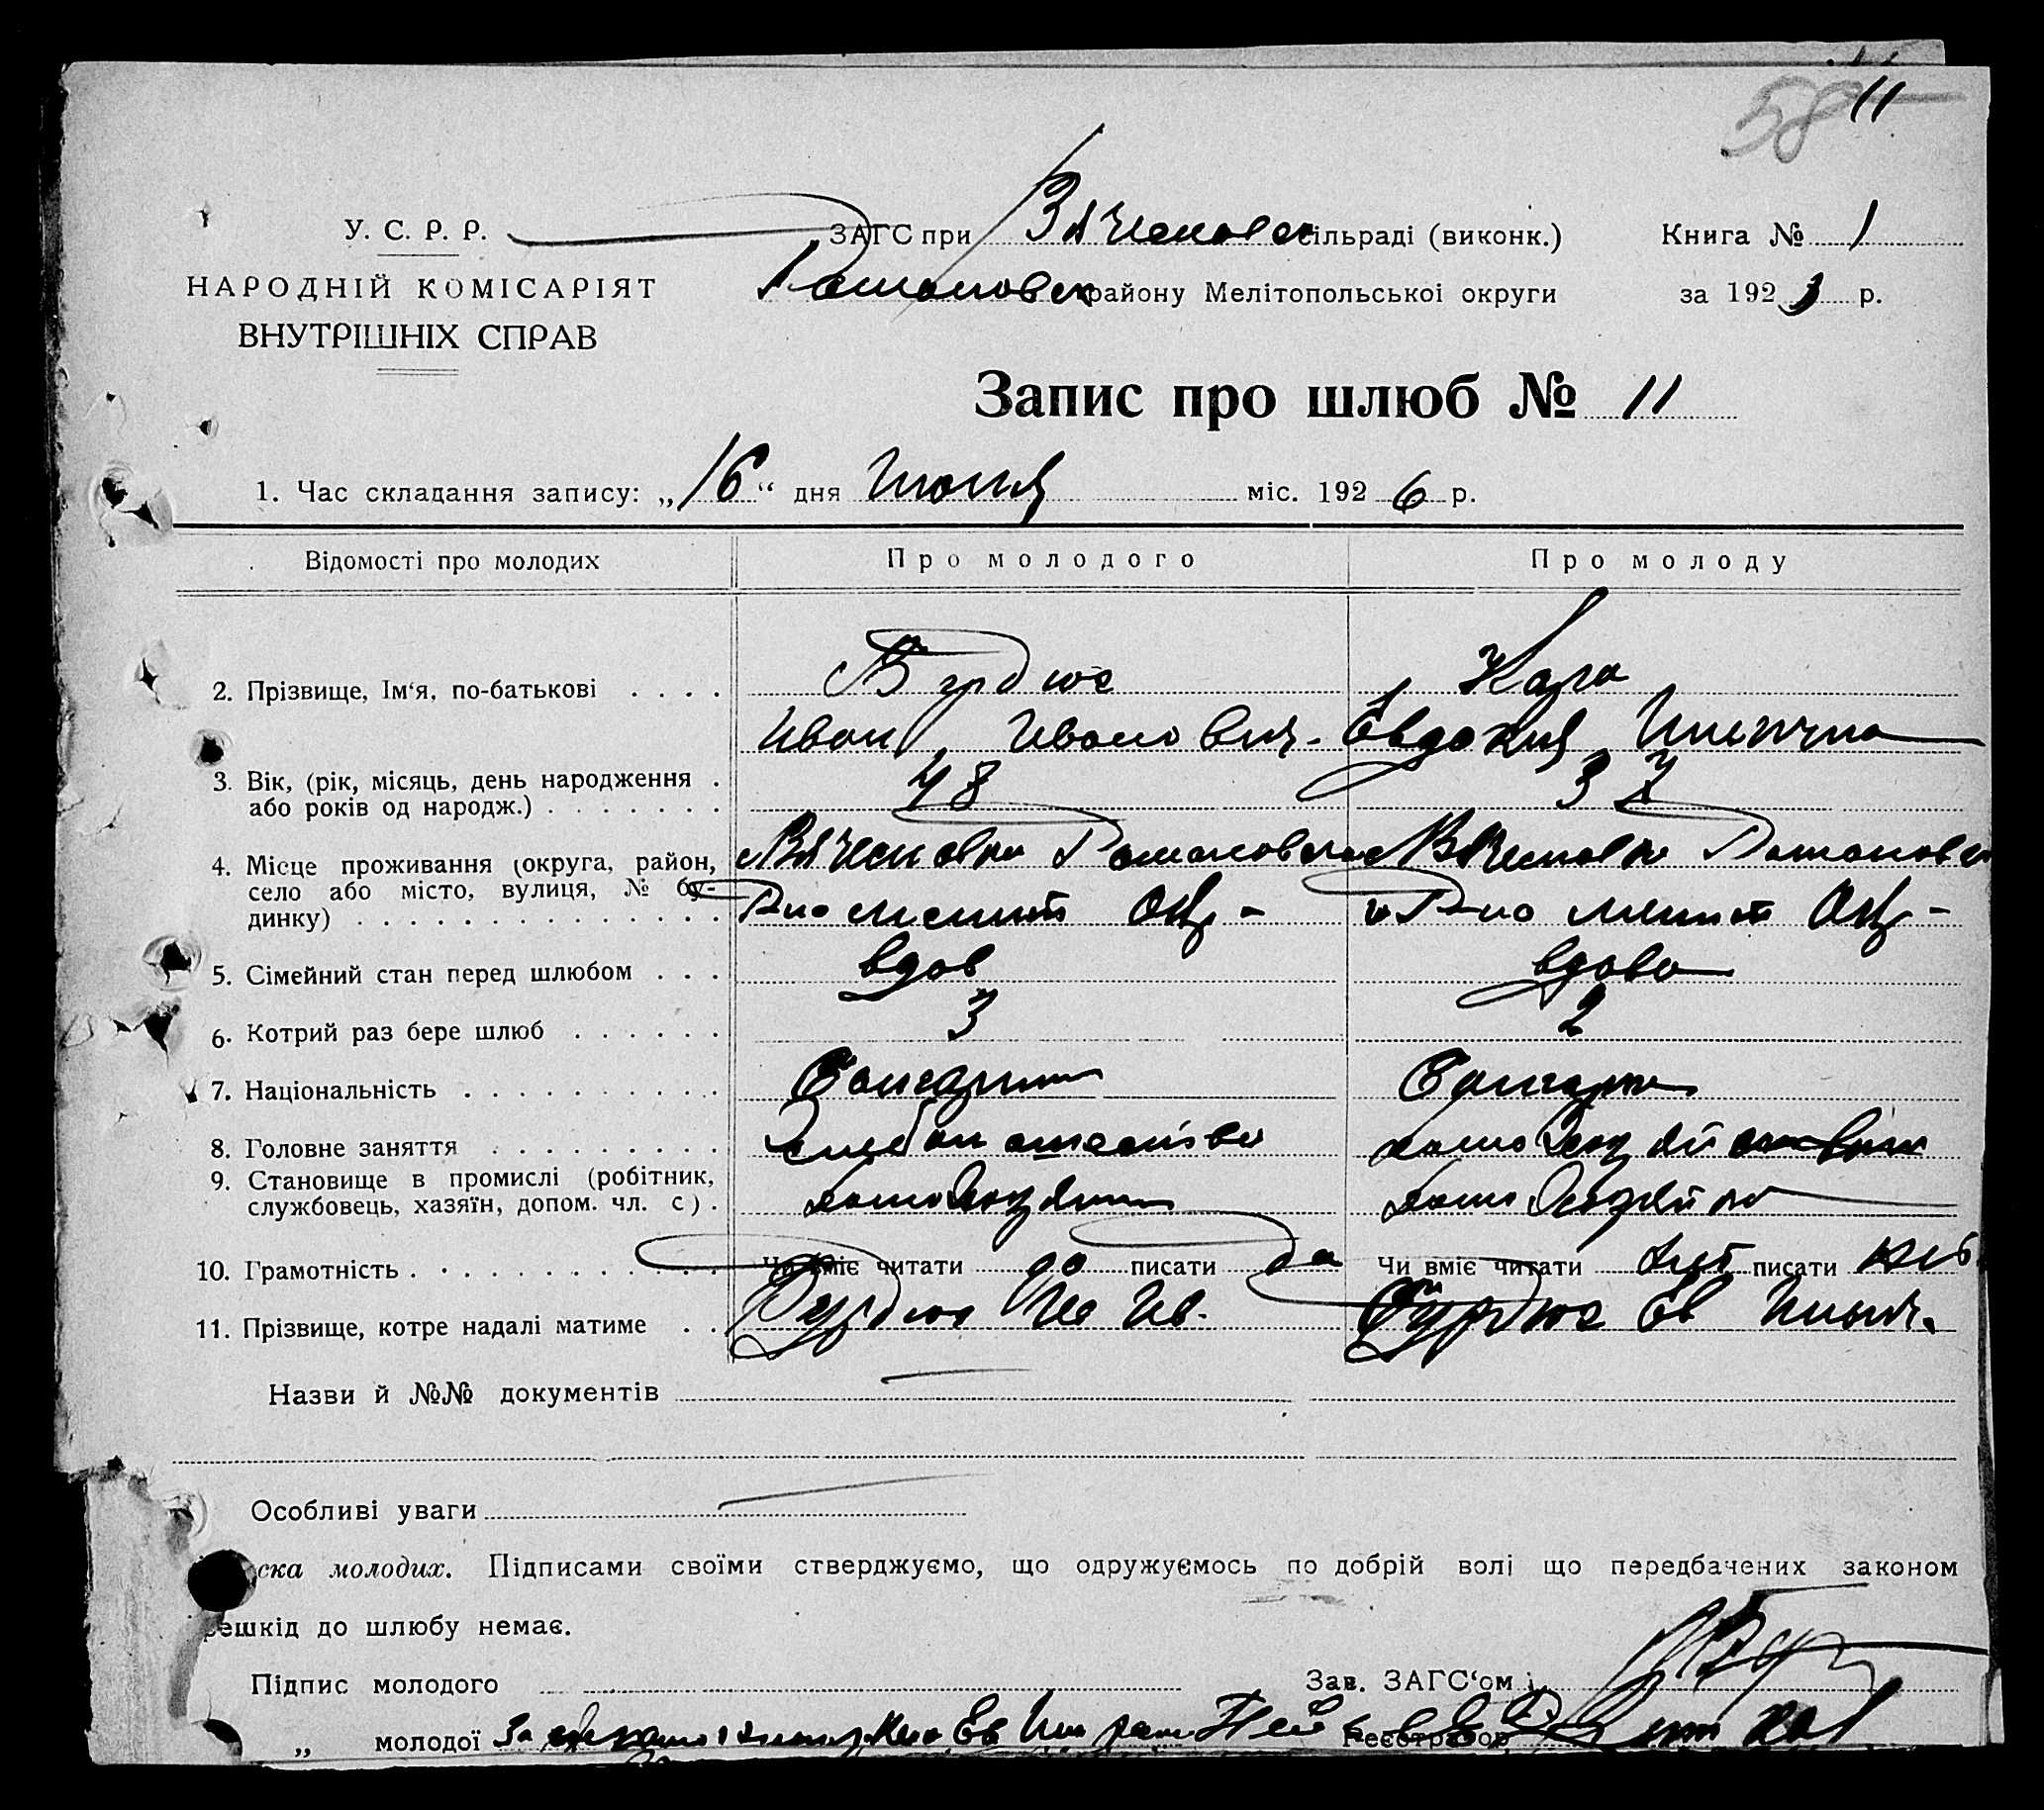 58 11
У. С. Р. Р.
ЗАГС при Вячеславск сільраді (виконк.)
Книга № 1
НАРОДНІЙ КОМІСАРІЯТ
ВНУТРІШНІХ СПРАВ
Романовск району Мелітопольської округи
за 1923 р.
Запис про шлюб № 11
1. Час складання запису: „16“ дня Июня міс. 1926 р.
Відомості про молодих Про молодого Про молоду
2. Прізвище, Ім‘я, по-батькові . . . . Бурдюг Кара
Иван Иванович. Евдокия
3. Вік, (рік, місяць, день народження . або років од народж.) . . . . . . . 48 37
4. Місце проживання (округа, район, Вячеславка Романовск Вячеславка Романовск
село або місто, вулиця, № бу-
динку) . . . . . . . . . . . . . . Р-на мелит Окр- Р-на мелит Окр-
5. Сімейний стан перед шлюбом . . . вдов вдова
6. Котрий раз бере шлюб . . . . . . 3 2
7. Національність . . . . . . . . . . Болгарин Болгарка
8. Головне заняття . . . . . . . . . Хлебопашество домохозяй
9. Становище в промислі (робітник,
службовець, хазяїн, допом. чл. с) . домохозяин домохозяйка
10. Грамотність . . . . . . . . . . . . Чи вміє читати да писати да Чи вміє читати нет писати нет
11. Прізвище, котре надалі матиме . . Бурдюг Ив Ив. Бурдюг Ев
Назви й №№ документів
Особливі уваги
ска молодих. Підписами своїми стверджуємо, що одружуємось по добрій волі що передбачених законом
решкід до шлюбу немає.
Підпис молодого Зав. ЗАГС‘ом
„ молодої За Ев Реєстратор